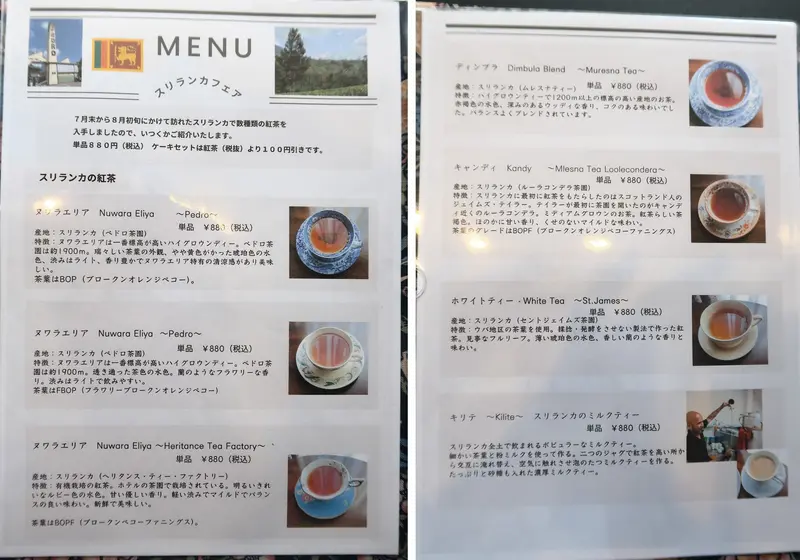 MENU
スリランカフェア
7月末から8月初旬にかけて訪れたスリランカで数種類の紅茶を
入手しましたので、いつくかご紹介いたします。
単品880円(税込) ケーキセットは紅茶(税抜)より100円引きです。
スリランカの紅茶
ヌワラエリア Nuwara Eliya ~Pedro~
単品 ¥880(税込)
産地:スリランカ(ペドロ茶園)
特徴:ヌワラエリアは一番標高が高いハイグロウンディー。ペドロ茶
園は約1900m。瑞々しい茶葉の外観、やや黄色がかった琥珀色の水
色、渋みはライト、香り豊かでヌワラエリア特有の清涼感があり美味
しい。
茶葉はBOP(ブロークンオレンジペコー)。
ヌワラエリア Nuwara Eliya ~Pedro~
単品 ¥880(税込)
産地:スリランカ(ペドロ茶園)
特徴:ヌワラエリアは一番標高が高いハイグロウンディー。ペドロ茶
園は約1900m。透き通った茶色の水色。蘭のようなフラワリーな香
り。渋みはライトで飲みやすい。
茶葉はFBOP(フラワリーブロークンオレンジペコー)
ヌワラエリア Nuwara Eliya ~Heritance Tea Factory~
単品 ¥880(税込)
産地:スリランカ(ヘリタンス・ティー・ファクトリー)
特徴:有機栽培の紅茶。ホテルの茶園で栽培されている。明るいきれ
いなルビー色の水色。甘い優しい香り。軽い渋みでマイルドでバランス
の良い味わい。新鮮で美味しい。
茶葉はBOPF(ブロークンペコーファニングス)。
ディンブラ Dimbula Blend ~Muresna Tea~
単品 ¥880(税込)
産地:スリランカ(ムレスナティー)
特徴:ハイグロウンティーで1200m以上の標高の高い産地のお茶。
赤褐色の水色、深みのあるウッディな香り、コクのある味わいでし
た。バランスよくブレンドされています。
キャンディ Kandy ~Mlesna Tea Loolecondera~
単品 ¥880(税込)
産地:スリランカ(ルーラコンデラ茶園)
特徴:スリランカに最初に紅茶をもたらしたのはスコットランド人の
ジェイムズ・テイラー。テイラーが最初に茶園を開いたのがキャンデ
ィ近くのルーラコンデラ。ミディアムグロウンのお茶。紅茶らしい茶
褐色。ほのかに甘い香り、くせのないマイルドな味わい。
茶葉のグレードはBOPF(ブロークンオレンジペコーファニングス)
ホワイトティー・White Tea ~St.James~
単品 ¥880(税込)
産地:スリランカ(セントジェイムズ茶園)
特徴:ウバ地区の茶葉を使用。揉捻・発酵をさせない製法で作った紅
茶。見事なフルリーフ。薄い琥珀色の水色、香しい蘭のような香りと
味わい。
キリテ ~Kilite~ スリランカのミルクティー
単品 ¥880(税込)
スリランカ全土で飲まれるポピュラーなミルクティー。
細かい茶葉と粉ミルクを使って作る。二つのジャグで紅茶を高い所か
ら交互に淹れ替え、空気に触れさせ泡のたつミルクティーを作る。
たっぷりと砂糖も入れた濃厚ミルクティー。